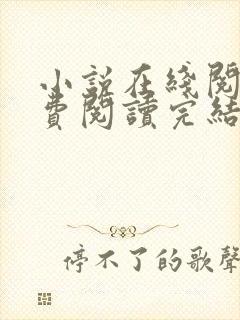 小說在綫閱
費閱讀完結
停不了的歌聲